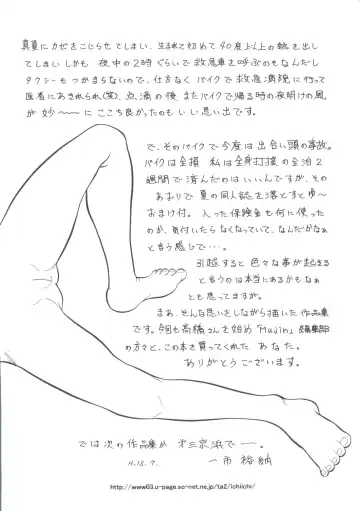 真夏にカゼをこじらせてしまい、生まれて初めて40度以上の熱を出し
てしまいしかも 夜中の2時ぐらいで救急車を呼ぶのもなんだし
タクシーもつかまらないので、仕方なくバイクで救急病院に行って
医者にあきれられ(笑)、点滴の後またバイクで帰る時の夜明けの風
が 妙〜〜に ここち良かったのもいい思い出です。
で、そのバイクで今度は出合い頭の事故。
バイクは全損 私は全身打撲の全治2
週間で済んだのはいいんですが、その
あおりで夏の同人誌を落とすとゆ〜
おまけ付。入った保険金も何に使った
のか、気付いたらなくなっていて、なんだかなぁ
と言う感じで…。
引越すると色々な事が起きる
と言うのは本当にあるかもなぁ
とも思ってますが。
まあ、そんな思いをしながら描いた作品集
です。今回も高橋さんを始め「Mujin」編集部
の方々と、この本を買ってくれた あなた。
ありがとうございます。
では次の作品集か 才三京浜で ー。
H.13.7. 一市 裕納
http://www03.u-page.so-net.ne.jp/ta2/ichiichi/